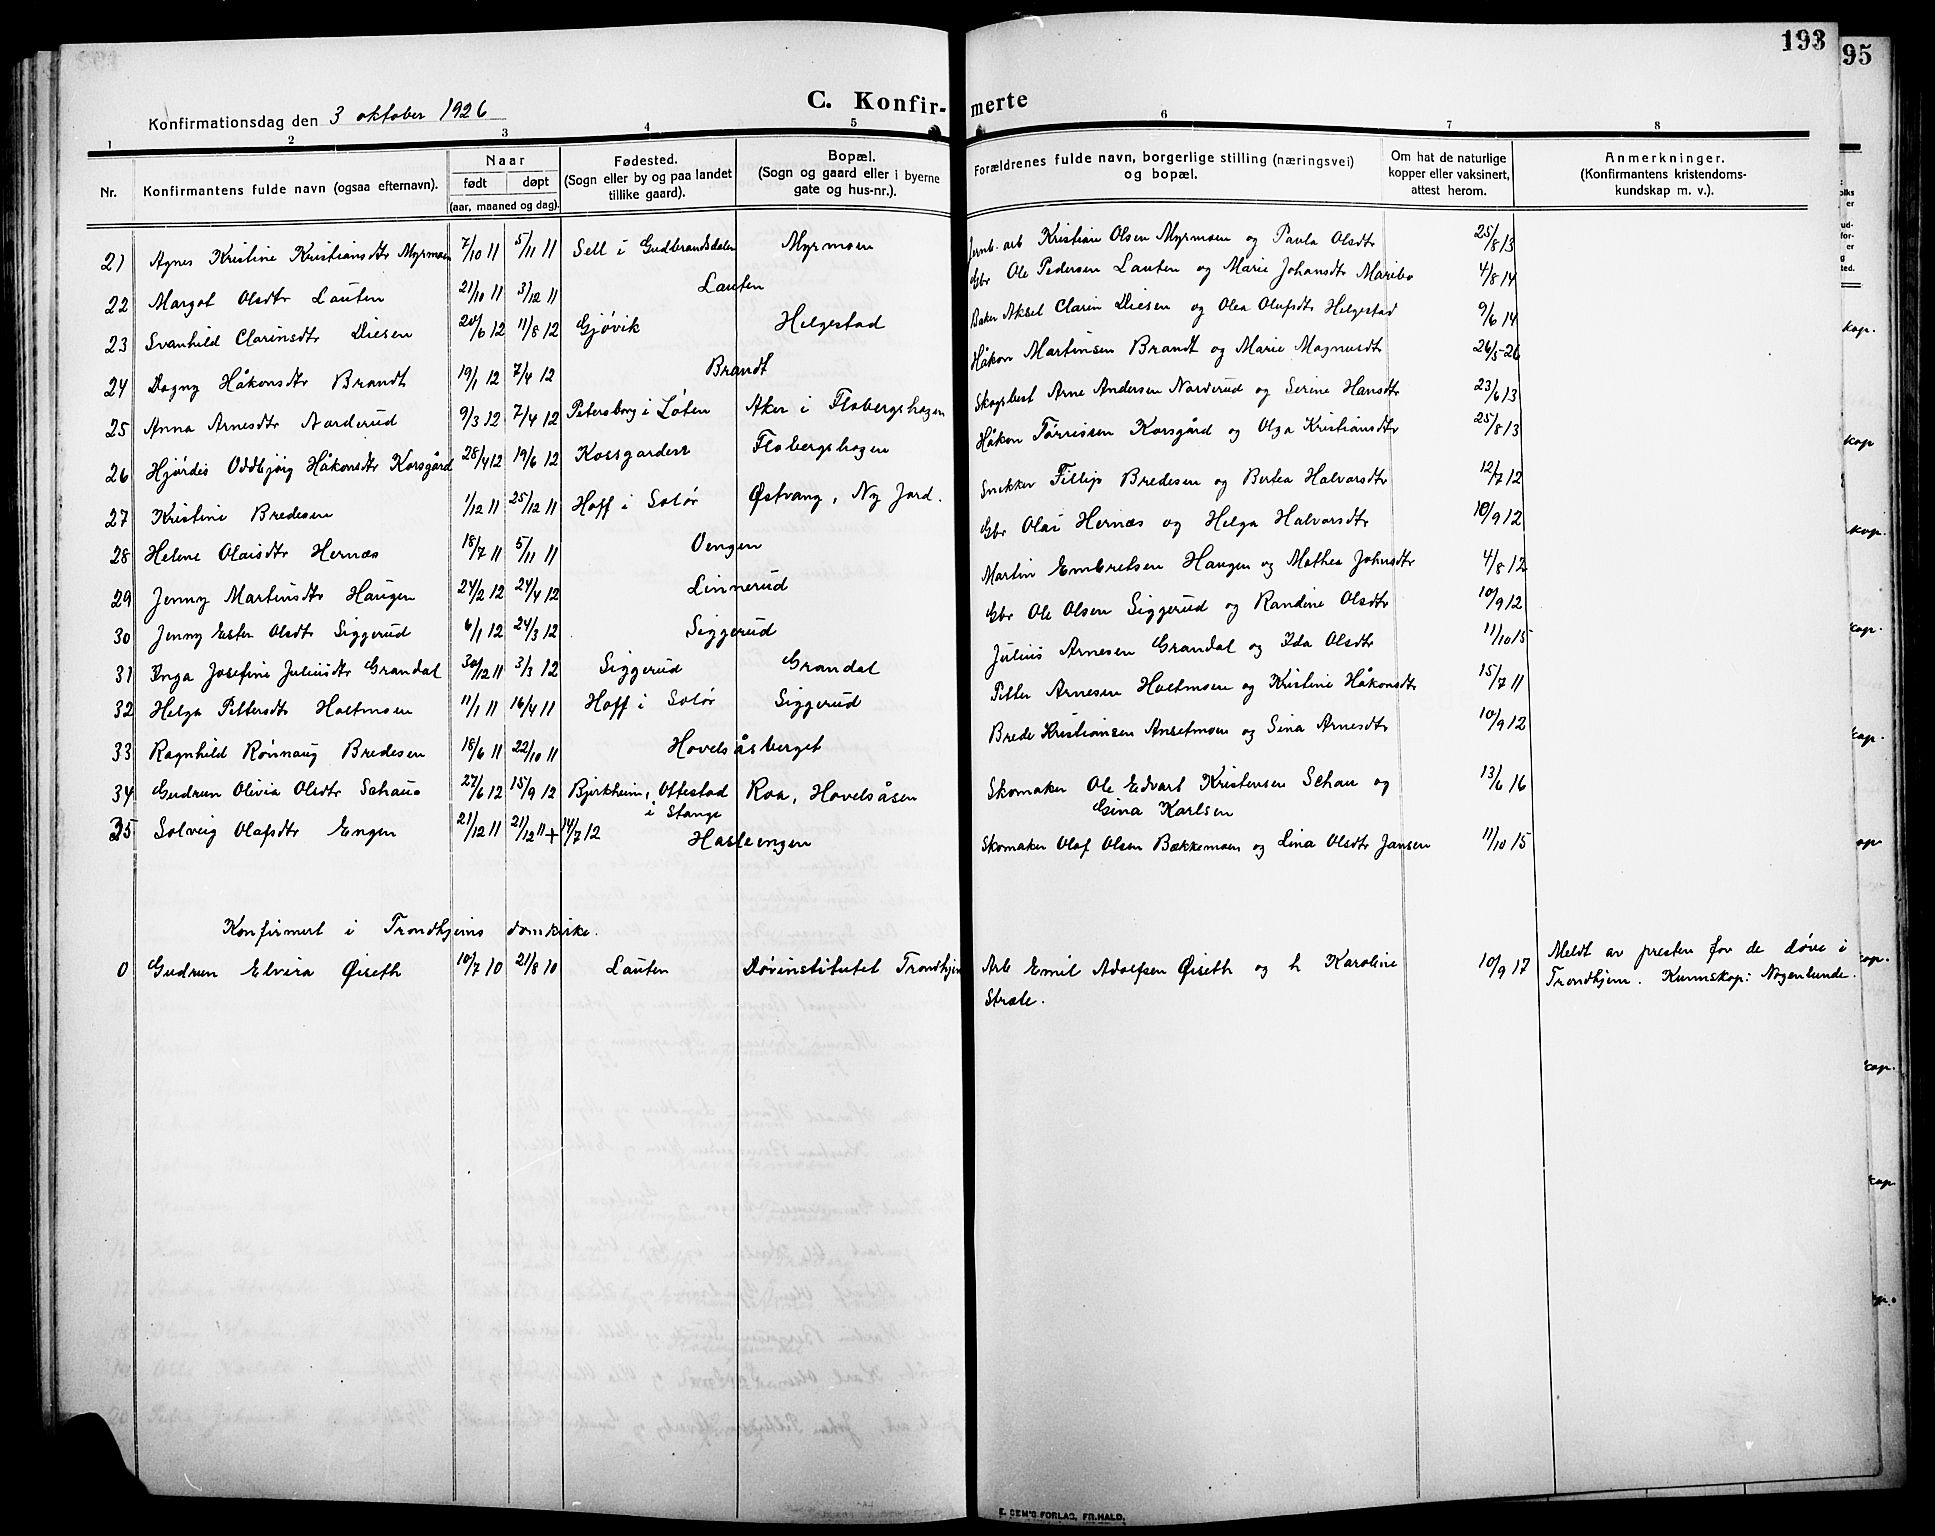 193
95
C. Konfir- merte
Konfirmationsdag den 3 oktober 1926
1 2 3 4 5 6 7 8
Nr. Konfirmantens fulde navn (ogsaa efternavn). Naar født døpt (aar, maaned og dag). Fødested. (Sogn eller by og paa landet tillike gaard). Bopæl. (Sogn og gaard eller i byerne gate og hus-nr.). Forældrenes fulde navn, borgerlige stilling (næringsvei) og bopæl. Om hat de naturlige kopper eller vaksinert, attest herom. Anmerkninger. (Konfirmantens kristendoms-kundskap m. v.).
21 Agnes Kristine Kristiansdtr Myrmoen 7/10 11 5/11 11 Sell i Gudbrandsdalen Myrmoen Jernb. arb Kristian Olsen Myrmoen og Paula Olsdtr 25/8 13
22 Margot Olsdtr Lauten 21/10 11 3/12 11 Lauten Gbr Ole Pedersen Lauten og Marie Johansdtr Maribo 4/8 14
23 Svanhild Clarinsdtr Diesen 20/6 12 11/8 12 Gjøvik Helgestad Baker Aksel Clarin Diesen og Olea Olufsdtr Helgestad 9/6 14
24 Dagny Håkonsdtr Brandt 19/1 12 7/4 12 Brandt Håkon Martinsen Brandt og Marie Magnusdtr 26/5-26
25 Anna Arnesdtr Narderud 9/3 12 7/4 12 Petersborg i Løten Aker i Flobergshagen Skogsbest Arne Andersen Narderud og Serine Hansdtr 23/6 13
26 Hjørdis Oddbjørg Håkonsdtr Korsgård 28/4 12 19/6 12 Korsgarden Flobergshagen Håkon Tørrissen Korsgård og Olga Kristiansdtr 25/8 13
27 Kristine Bredesen 1/12 11 25/12 11 Hoff i Solør Østvang, Ny Jord. Snekker Fillip Bredesen og Bertea Halvorsdtr 12/7 12
28 Helene Olaisdtr Hernæs 18/7 11 5/11 11 Oengen Gbr Olai Hernæs og Helga Halvorsdtr 10/9 12
29 Jenny Martinsdtr Haugen 24/2 12 24/4 12 Linnerud Martin Embretsen Haugen og Mathea Johnsdtr 4/8 12
30 Jenny Ester Olsdtr Siggerud 6/1 12 24/3 12 Siggerud Gbr Ole Olsen Siggerud og Randine Olsdtr 10/9 12
31 Inga Josefine Juliusdtr Grandal 30/12 11 3/3 12 Siggerud Grandal Julius Arnesen Grandal og Ida Olsdtr 11/10 15
32 Helga Pettersdtr Holtmoen 11/1 11 16/4 11 Hoff i Solør Siggerud Petter Arnesen Holtmoen og Kristine Håkonsdtr 15/7 11
33 Ragnhild Rønnaug Bredesen 18/6 11 22/10 11 Hovelsåsberget Brede Kristiansen Ansetmoen og Sina Arnesdtr 10/9 12
34 Gudrun Olivia Olsdtr Schau 27/6 12 15/9 12 Bjerkheim, Ottestad i Stange Roa, Hovelsåsen Skomaker Ole Edvart Kristensen Schau og Gina Karlsen 13/6 16
35 Solveig Olafsdtr Engen 21/12 11 21/12 11 + 14/7 12 Hasleengen Skomaker Olaf Olsen Bækkemoen og Lina Olsdtr Jansen 11/10 15
Konfirmert i Trondhjems domkirke.
0 Gudrun Elvira Øiseth 10/7 10 21/8 10 Lauten Døvinstitutet Trondhjem Arb Emil Adolfsen Øiseth og h Karoline Stræte. 10/9 17 Meldt av presten for de døve i Trondhjem. Kunnskap: Nogenlunde.
kop.
kop
kop.
kop.
kop.
kop.
kop.
kop.
kop.
E. SEM'S FORLAG, FR.HALD.